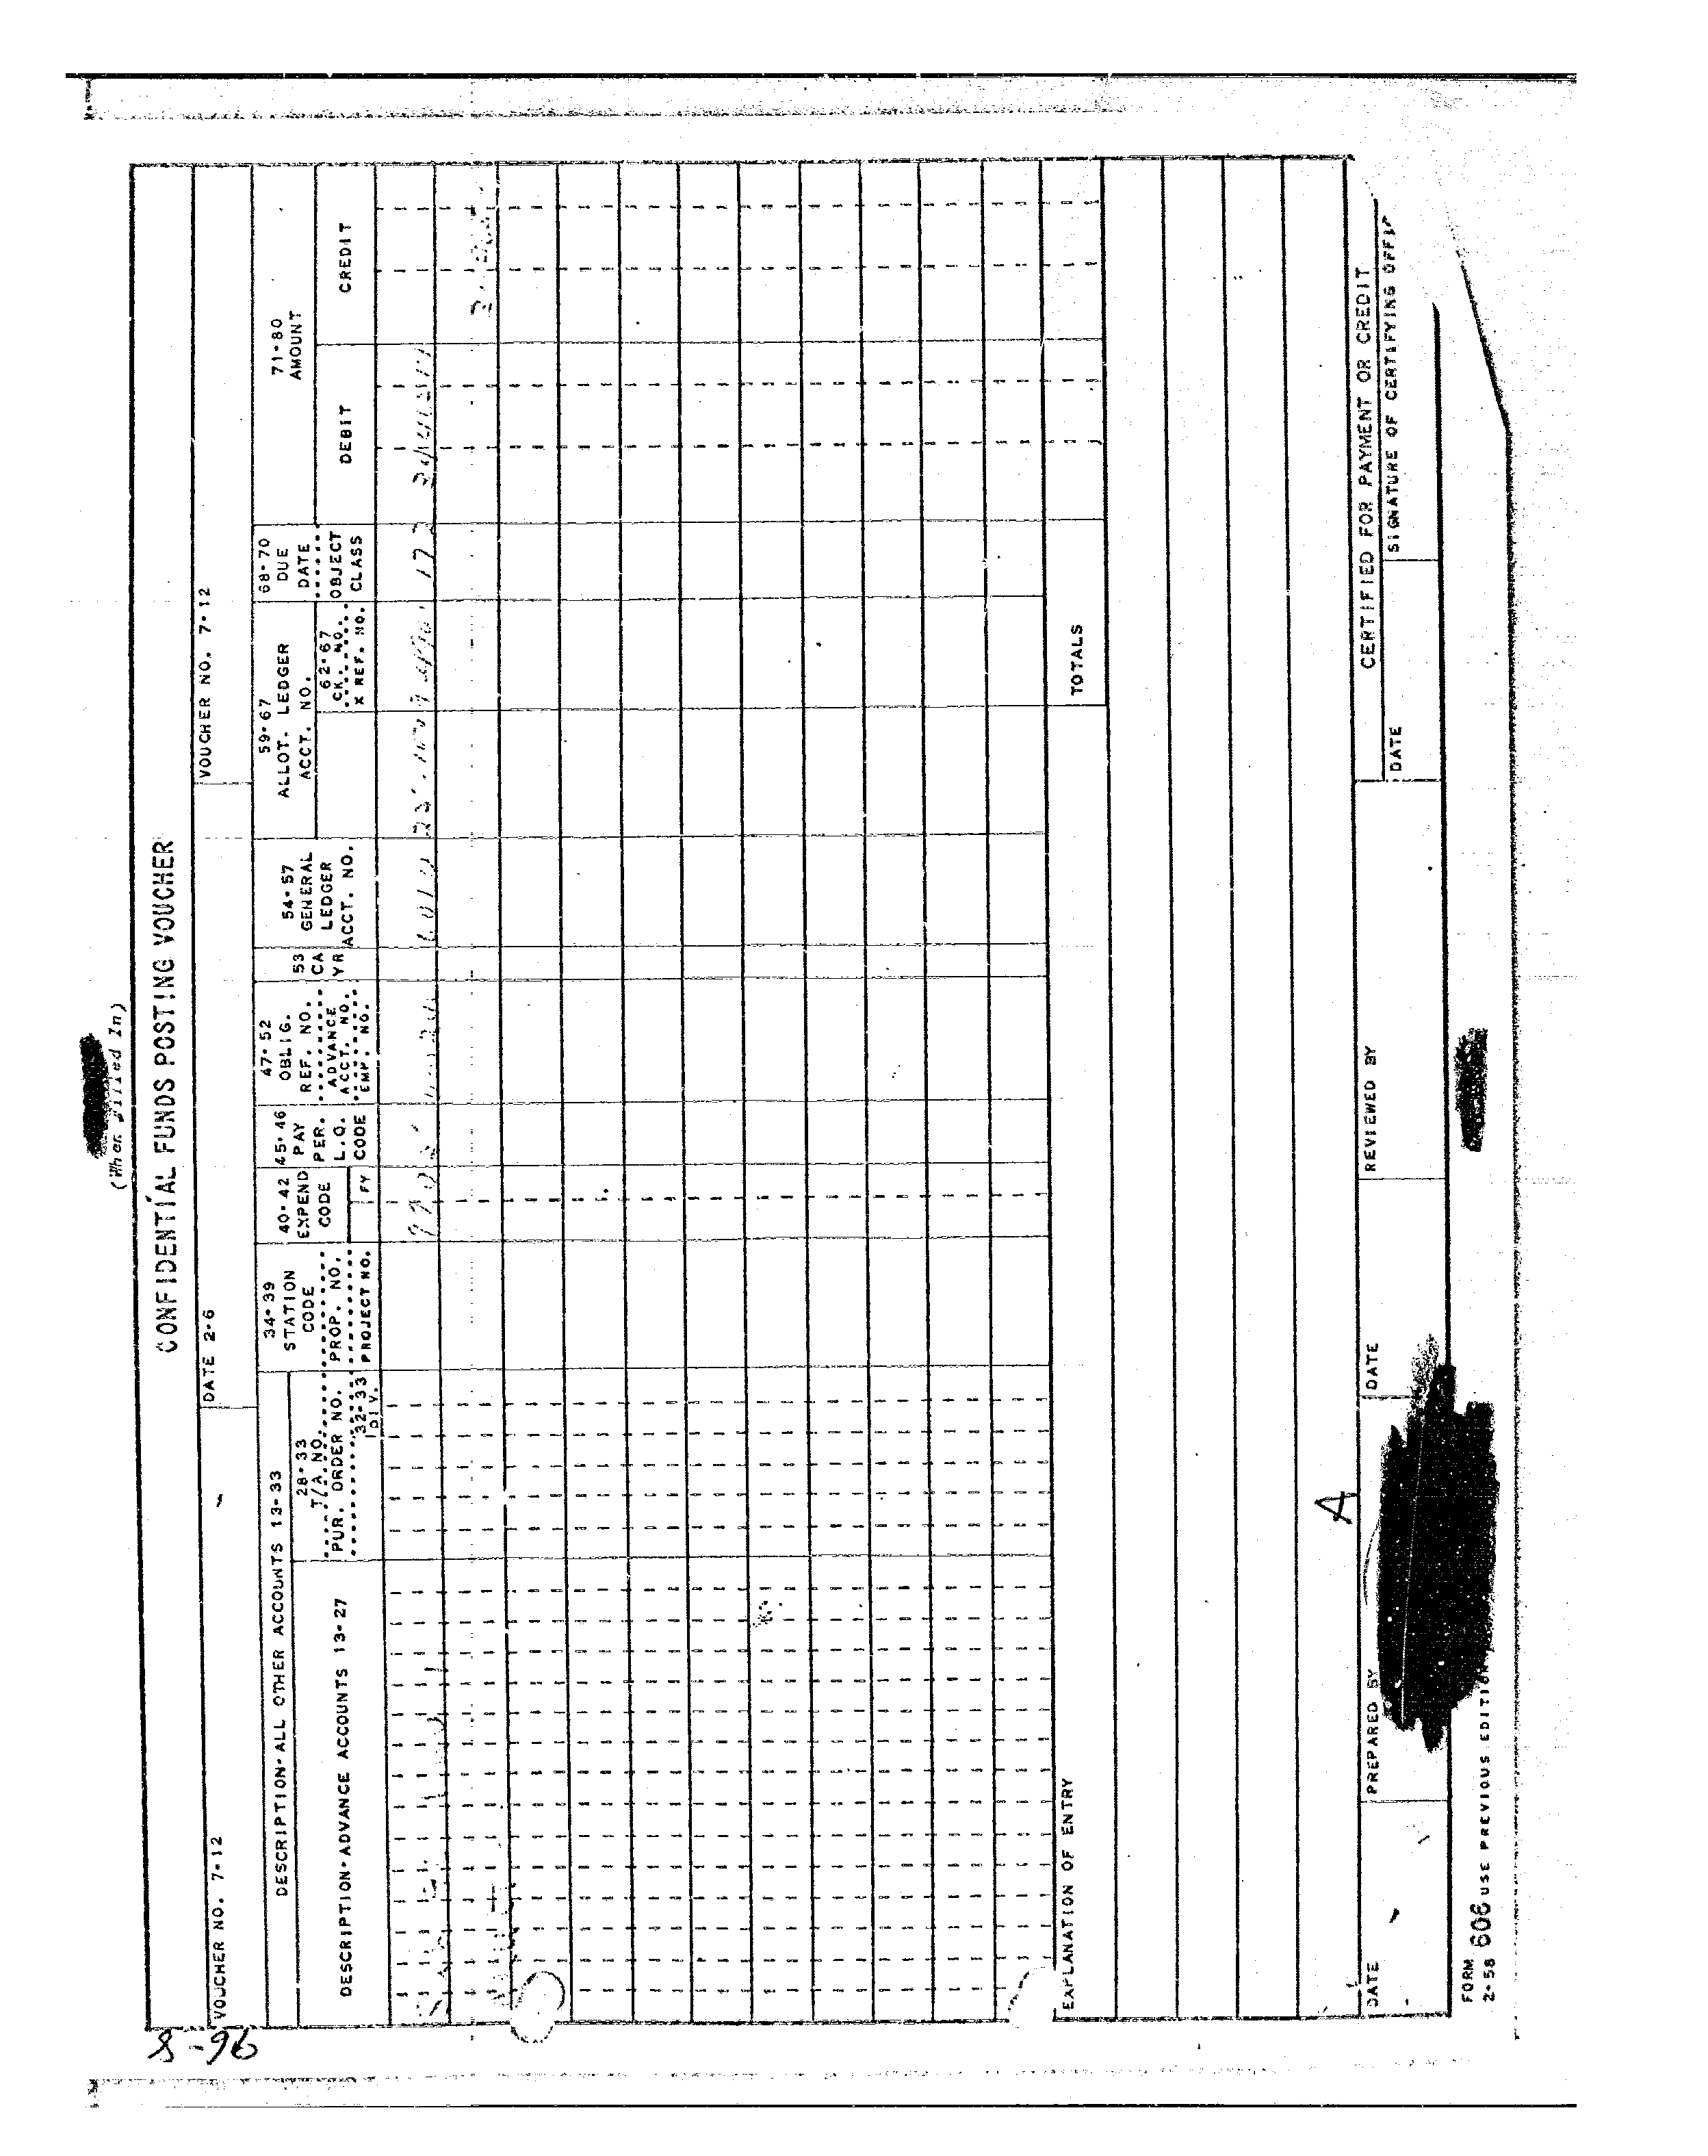 (When Filled In)
CONFIDENTIAL FUNDS POSTING VOUCHER
VOUCHER NO. 7-12
DATE 2-6
VOUCHER NO. 7-12
DESCRIPTION-ALL OTHER ACCOUNTS 13-33
DESCRIPTION-ADVANCE ACCOUNTS 13-27
28-33
T/A NO.
PUR. ORDER NO.
32-33
DIV.
34-39
STATION
CODE
PROP. NO.
PROJECT NO.
40-42
EXPEND
CODE
FY
45-46
PAY
PER.
L.Q.
CODE
47-52
OBLIG.
REF. NO.
ADVANCE
ACCT. NO.
EMP. NO.
53
CA
YR
54-57
GENERAL
LEDGER
ACCT. NO.
59-67
ALLOT. LEDGER
ACCT. NO.
62-67
CK. NO.
X REF. NO.
68-70
DUE
DATE
OBJECT
CLASS
71-80
AMOUNT
DEBIT
CREDIT
TOTALS
EXPLANATION OF ENTRY
A
DATE
PREPARED BY
DATE
REVIEWED BY
CERTIFIED FOR PAYMENT OR CREDIT
DATE
SIGNATURE OF CERTIFYING
FORM
2-58 606 USE PREVIOUS EDITION
8-96